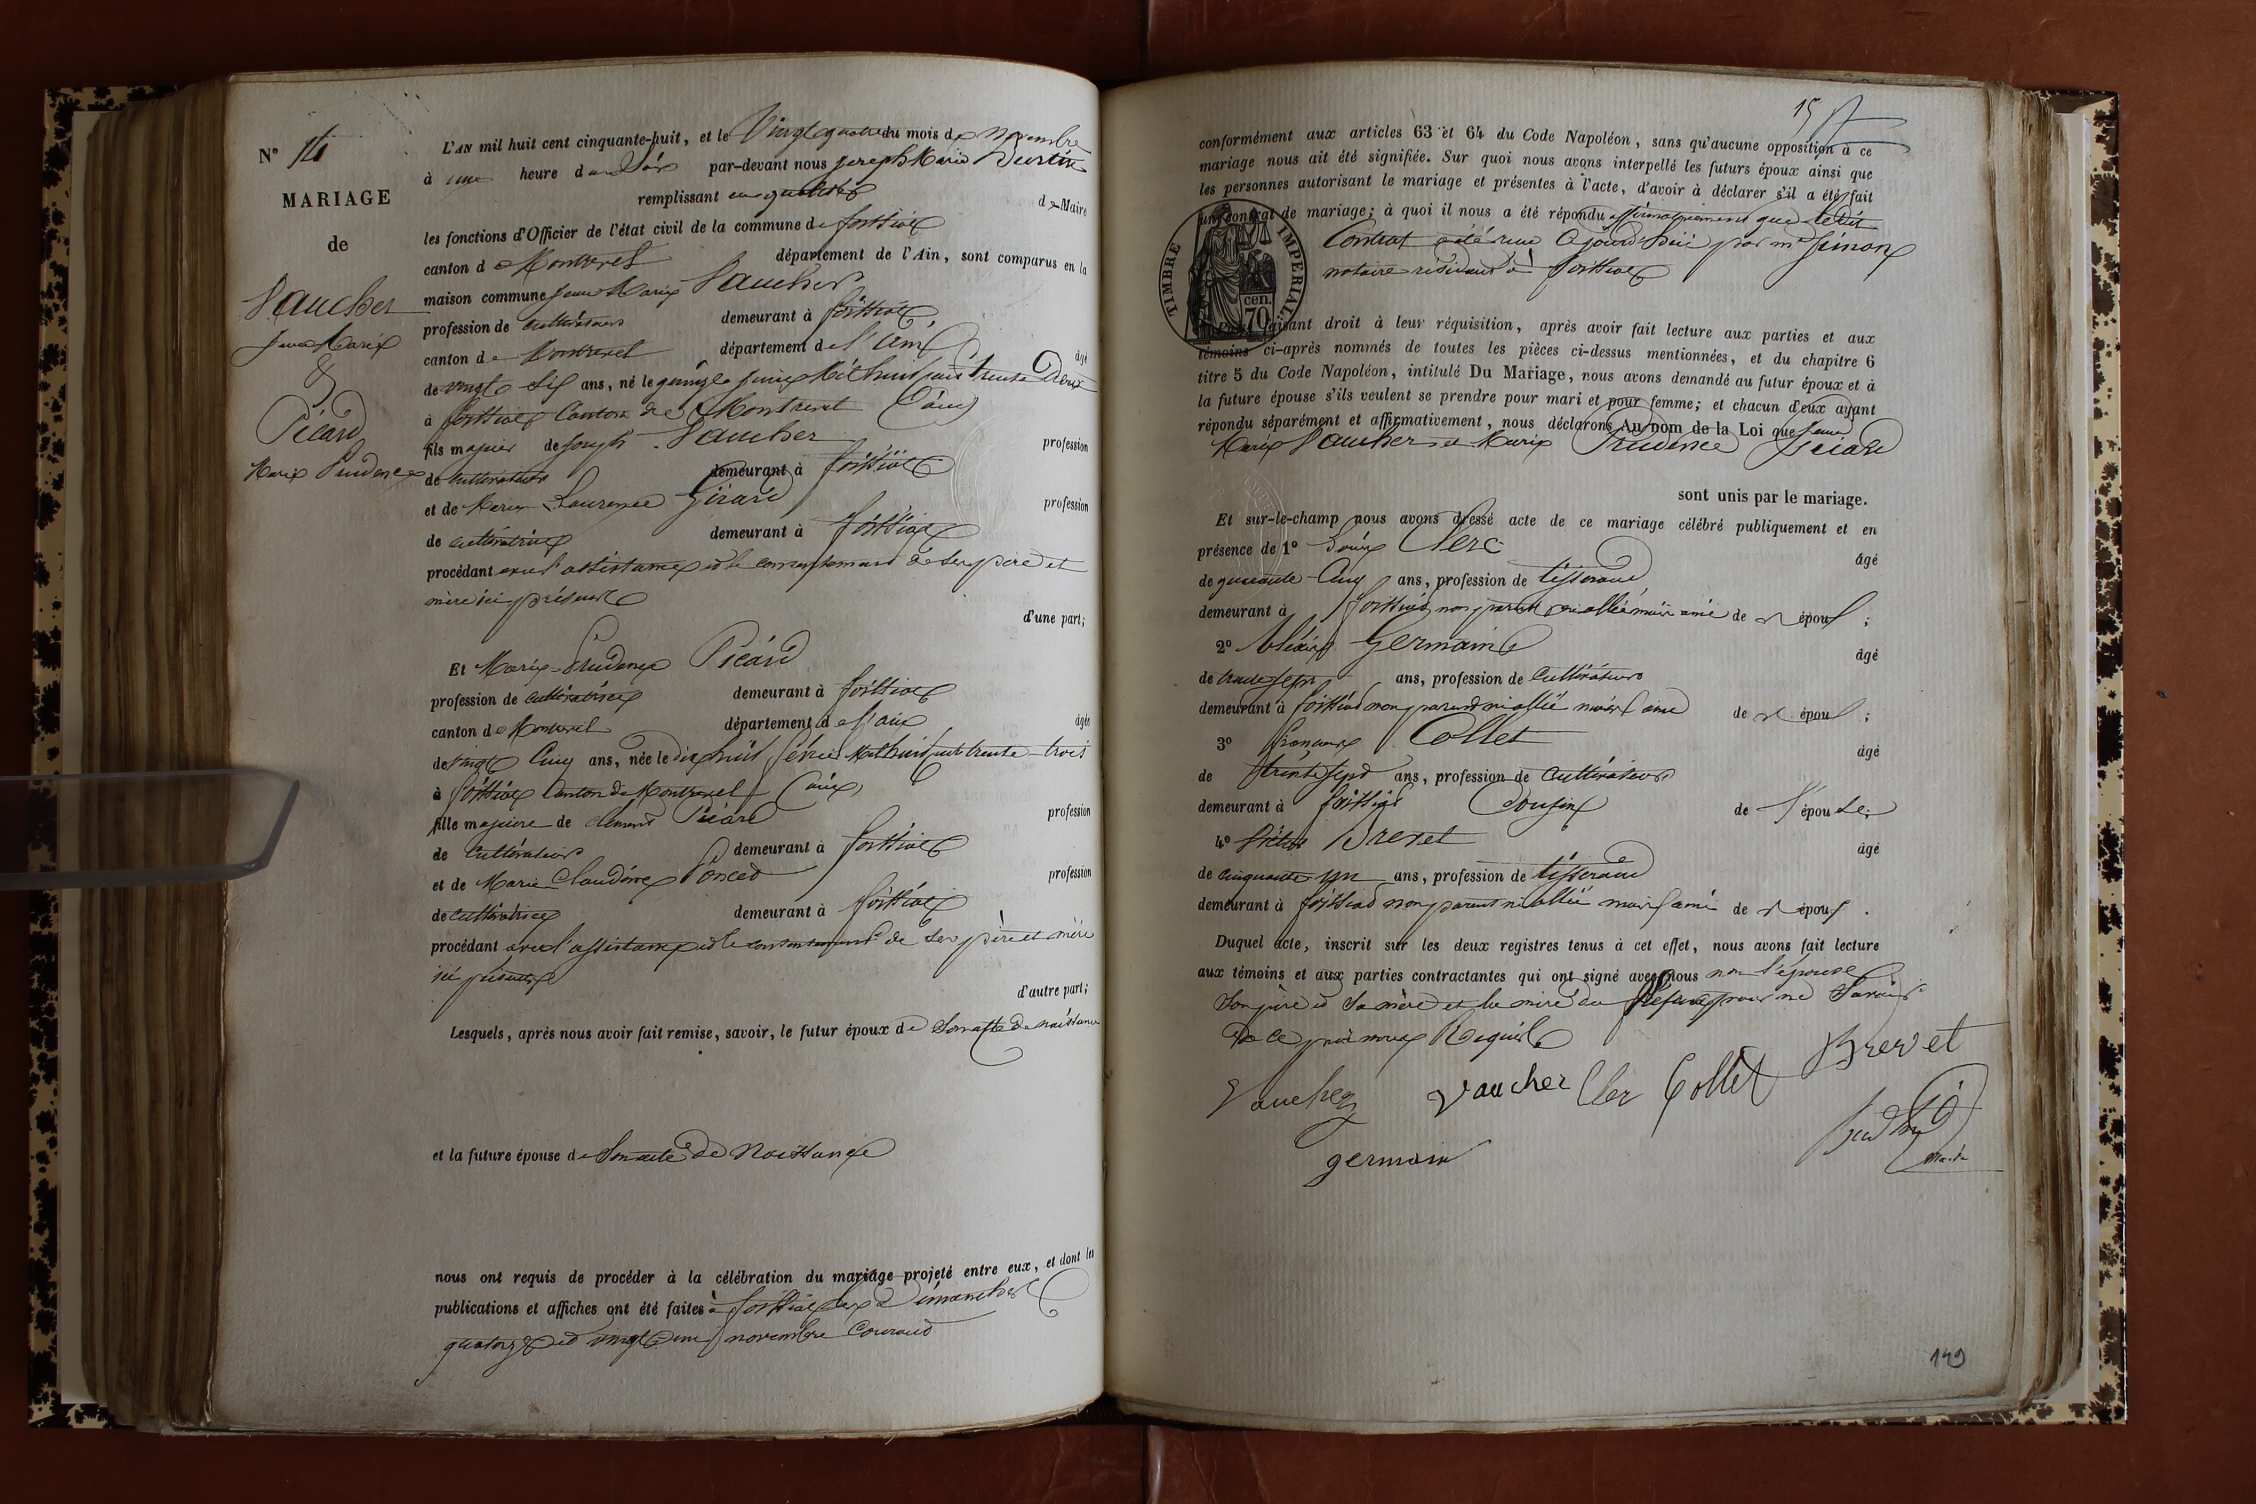 N° 14
MARIAGE
de
Vaucher
Jean Marie
&
Picard
Marie Prudence
L'AN mil huit cent cinquante-huit, et le Vingt quatre du mois de Novembre
à une heure du Soir par-devant nous Joseph Marie
remplissant en qualité de Maire
les fonctions d'Officier de l'état civil de la commune de foissiat
canton de Montrevel département de l'Ain, sont comparus en la
maison commune Jean Marie Vaucher
profession de cultivateur demeurant à foissiat
canton de Montrevel département de l'ain âgé
de vingt six ans, né le quinze juin Mil huit cent trente Deux
à foissiat Canton de Montrevel (ain)
fils majeur de Joseph Vaucher profession
de cultivateur demeurant à foissiat
et de Marie Laurence Girard profession
de cultivatrice demeurant à foissiat
procédant avec l'assistance et le consentement de ses père et
mère ici présents
d'une part;
Et Marie Prudence Picard
profession de cultivatrice demeurant à foissiat
canton de Montrevel département de l'ain âgée
de vingt Cinq ans, née le dix huit février Mil huit cent trente-trois
à foissiat Canton de Montrevel (ain)
fille majeure de clément Picard profession
de cultivateur demeurant à foissiat
et de Marie Claudine Poncet profession
de cultivatrice demeurant à foissiat
procédant avec l'assistance et le consentement de ses père et mère
ici présents
d'autre part;
Lesquels, après nous avoir fait remise, savoir, le futur époux de Son acte de naissance
et la future épouse de Son acte de Naissance
nous ont requis de procéder à la célébration du mariage projeté entre eux, et dont les
publications et affiches ont été faites à foissiat les Dimanches
quatorze et vingt un novembre Courant
15
conformément aux articles 63 et 64 du Code Napoléon, sans qu'aucune opposition à ce
mariage nous ait été signifiée. Sur quoi nous avons interpellé les futurs époux ainsi que
les personnes autorisant le mariage et présentes à l'acte, d'avoir à déclarer s'il a été fait
un contrat de mariage; à quoi il nous a été répondu affirmativement que ledit
Contrat a été reçu aujourd'hui par me
notaire résidant à foissiat
TIMBRE IMPERIAL
cen.
70
faisant droit à leur réquisition, après avoir fait lecture aux parties et aux
témoins ci-après nommés de toutes les pièces ci-dessus mentionnées, et du chapitre 6
titre 5 du Code Napoléon, intitulé Du Mariage, nous avons demandé au futur époux et à
la future épouse s'ils veulent se prendre pour mari et pour femme; et chacun d'eux ayant
répondu séparément et affirmativement, nous déclarons Au nom de la Loi que Jean
Marie Vaucher et Marie Prudence Picard
sont unis par le mariage.
Et sur-le-champ nous avons dressé acte de ce mariage célébré publiquement et en
présence de 1° Louis Clerc âgé
de quarante Cinq ans, profession de tisserand
demeurant à foissiat non parent ni allié mais ami de l'époux;
2° Germain âgé
de trente sept ans, profession de Cultivateur
demeurant à foissiat non parent ni allié mais ami de l'époux;
3° françois Collet âgé
de trente sept ans, profession de cultivateur
demeurant à foissiat Cousin de l'épouse;
4° Brevet âgé
de cinquante un ans, profession de tisserand
demeurant à foissiat non parent ni allié mais ami de l'époux.
Duquel acte, inscrit sur les deux registres tenus à cet effet, nous avons fait lecture
aux témoins et aux parties contractantes qui ont signé avec nous non l'épouse
Son père et Sa mère et la mère du pour ne Savoir
De ce par nous Requis
Vaucher vaucher Clerc Collet Brevet
germain
Maire
149